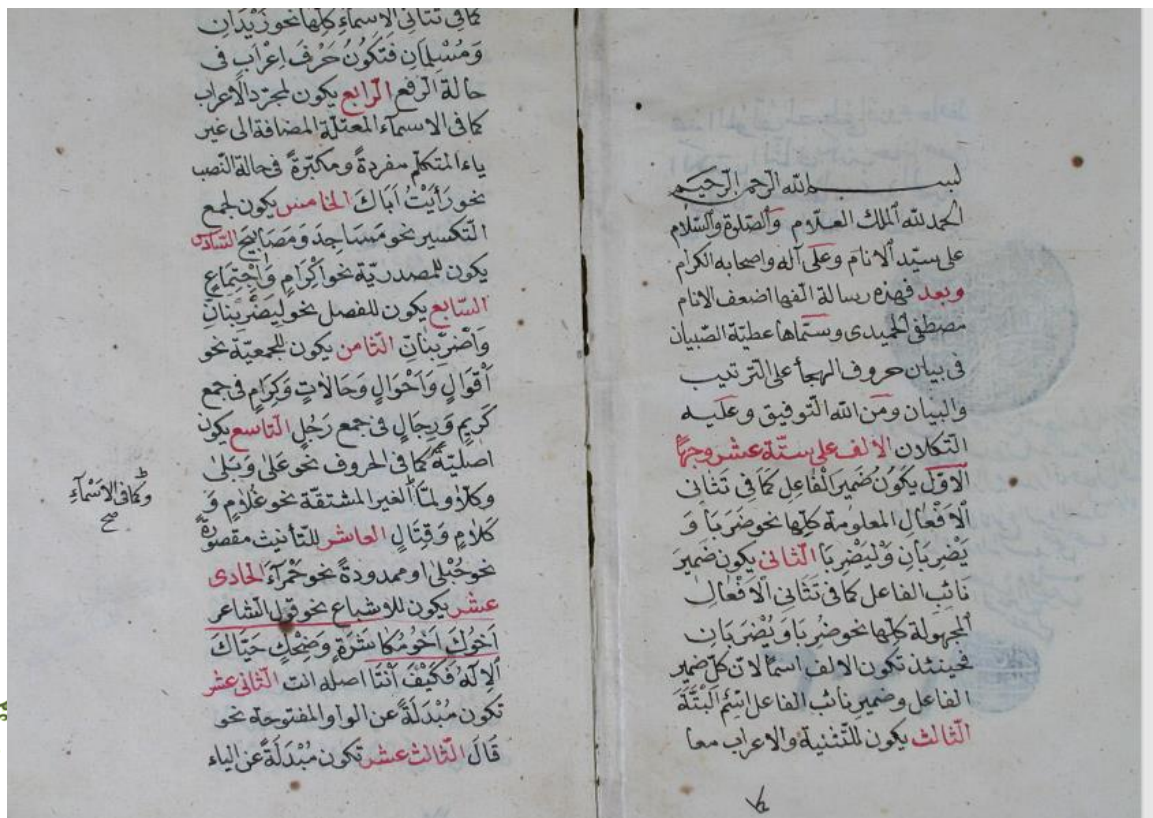 بسم الله الرحمن الرحيم
الحمد لله الملك العلام والصلوة والسلام
على سيد الانام وعلى آله واصحابه الكرام
وبعد فهذه رسالة الفها اضعف الانام
مصطفى الحميدى وسماها عطية الصبيان
فى بيان حروف الهجأ على الترتيب
والبيان ومن الله التوفيق وعليه
التكلان الالف على ستة عشر وجها
الاول يكون ضمير الفاعل كما فى تثانى
الافعال المعلومة كلها نحو ضَرَبَا وَ
يَضْرِبَانِ وَلْيَضْرِبَا الثانى يكون ضمير
نائب الفاعل كما فى تثانى الافعال
المجهولة كلها نحو ضُرِبَا وَيُضْرَبَانِ
فحينئذ تكون الالف اسما لان كل ضمير
الفاعل وضمير نائب الفاعل اسم البتة
الثالث يكون للتثنية والاعراب معا
كما فى تثانى الاسماء كلها نحو زَيْدَانِ
وَمُسْلِمَانِ فتكون حرف اعراب فى
حالة الرفع الرابع يكون لمجرد الاعراب
كما فى الاسماء المعتلة المضافة الى غير
ياء المتكلم مفردةً ومكبرةً فى حالة النصب
نحو رَأَيْتُ اَبَاكَ الخامس يكون لجمع
التكسير نحو مَسَاجِدَ وَمَصَابِيحَ السادس
يكون للمصدرية نحو اِكْرَامٍ وَاِجْتِمَاعٍ
السابع يكون للفصل نحو لِيَضْرِبْنَانِّ
وَاضْرِبْنَانِّ الثامن يكون للجمعية نحو
اَقْوَالٍ وَاَحْوَالٍ وَحَالَاتٍ وَكِرَامٍ فى جمع
كَرِيمٍ وَرِجَالٍ فى جمع رَجُلٍ التاسع يكون
اصلية كما فى الحروف نحو عَلَى وَبَلَى
وكلا ولما الغير المشتقة نحو غُلَامٍ وَ
كَلَامٍ وَقِتَالٍ العاشر للتأنيث مقصورةً
نحو حُبْلَى او ممدودةً نحو حَمْرَآءَ الحادى
عشر يكون للاشباع نحو قول الشاعر
اَخُوكَ اَخُو مُكَاشَرَةٍ وَضِحْكٍ حَيَّاكَ
الاله فكيف اَنْتَا اصله انت الثانى عشر
تكون مُبْدَلَةً عن الواو المفتوحة نحو
قَالَ الثالث عشر تكون مُبْدَلَةً عن الياء
وكما فى الاسماء
صح